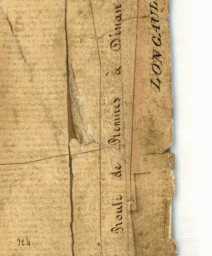 Route de Rennes à Dinan
LONGAUL